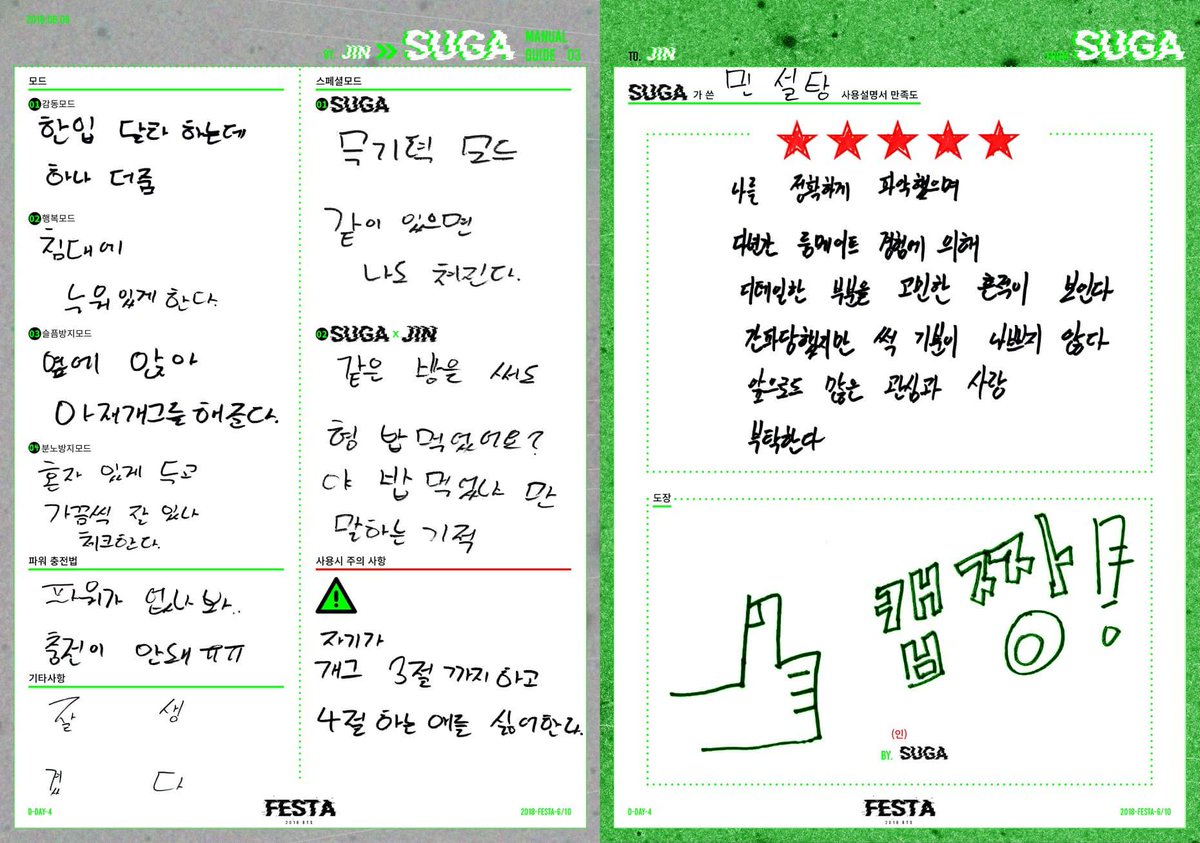 2018.06.09
BY. JIN >> SUGA MANUAL
GUIDE 03
모드
01 감동모드
한입 달라 하는데
하나 더줌
02 행복모드
침대에
누워있게 한다.
03 슬픔방지모드
옆에 앉아
아재개그를 해준다.
04 분노방지모드
혼자 있게 두고
가끔씩 잘 있나
체크한다.
파워 충전법
파워가 없나 봐..
충전이 안돼 ㅠㅠ
기타사항
잘 생
겼 다
스페셜모드
01 SUGA
무기력 모드
같이 있으면
나도 쳐진다.
02 SUGA x JIN
같은 방을 써도
형 밥 먹었어요?
야 밥 먹었냐 만
말하는 기적
사용시 주의 사항
자기가
개그 3절 까지 하고
4절 하는 애를 싫어한다.
D-DAY-4
FESTA
2018 BTS
2018-FESTA-6/10
TO. JIN
SUGA
SUGA 가 쓴 민 설탕 사용설명서 만족도
★★★★★
나를 정확하게 파악했으며
다년간 룸메이트 경험에 의해
디테일한 부분을 고민한 흔적이 보인다
간파당했지만 썩 기분이 나쁘지 않다
앞으로도 많은 관심과 사랑
부탁한다
도장
캡짱!
(인)
BY. SUGA
D-DAY-4
FESTA
2018 BTS
2018-FESTA-6/10